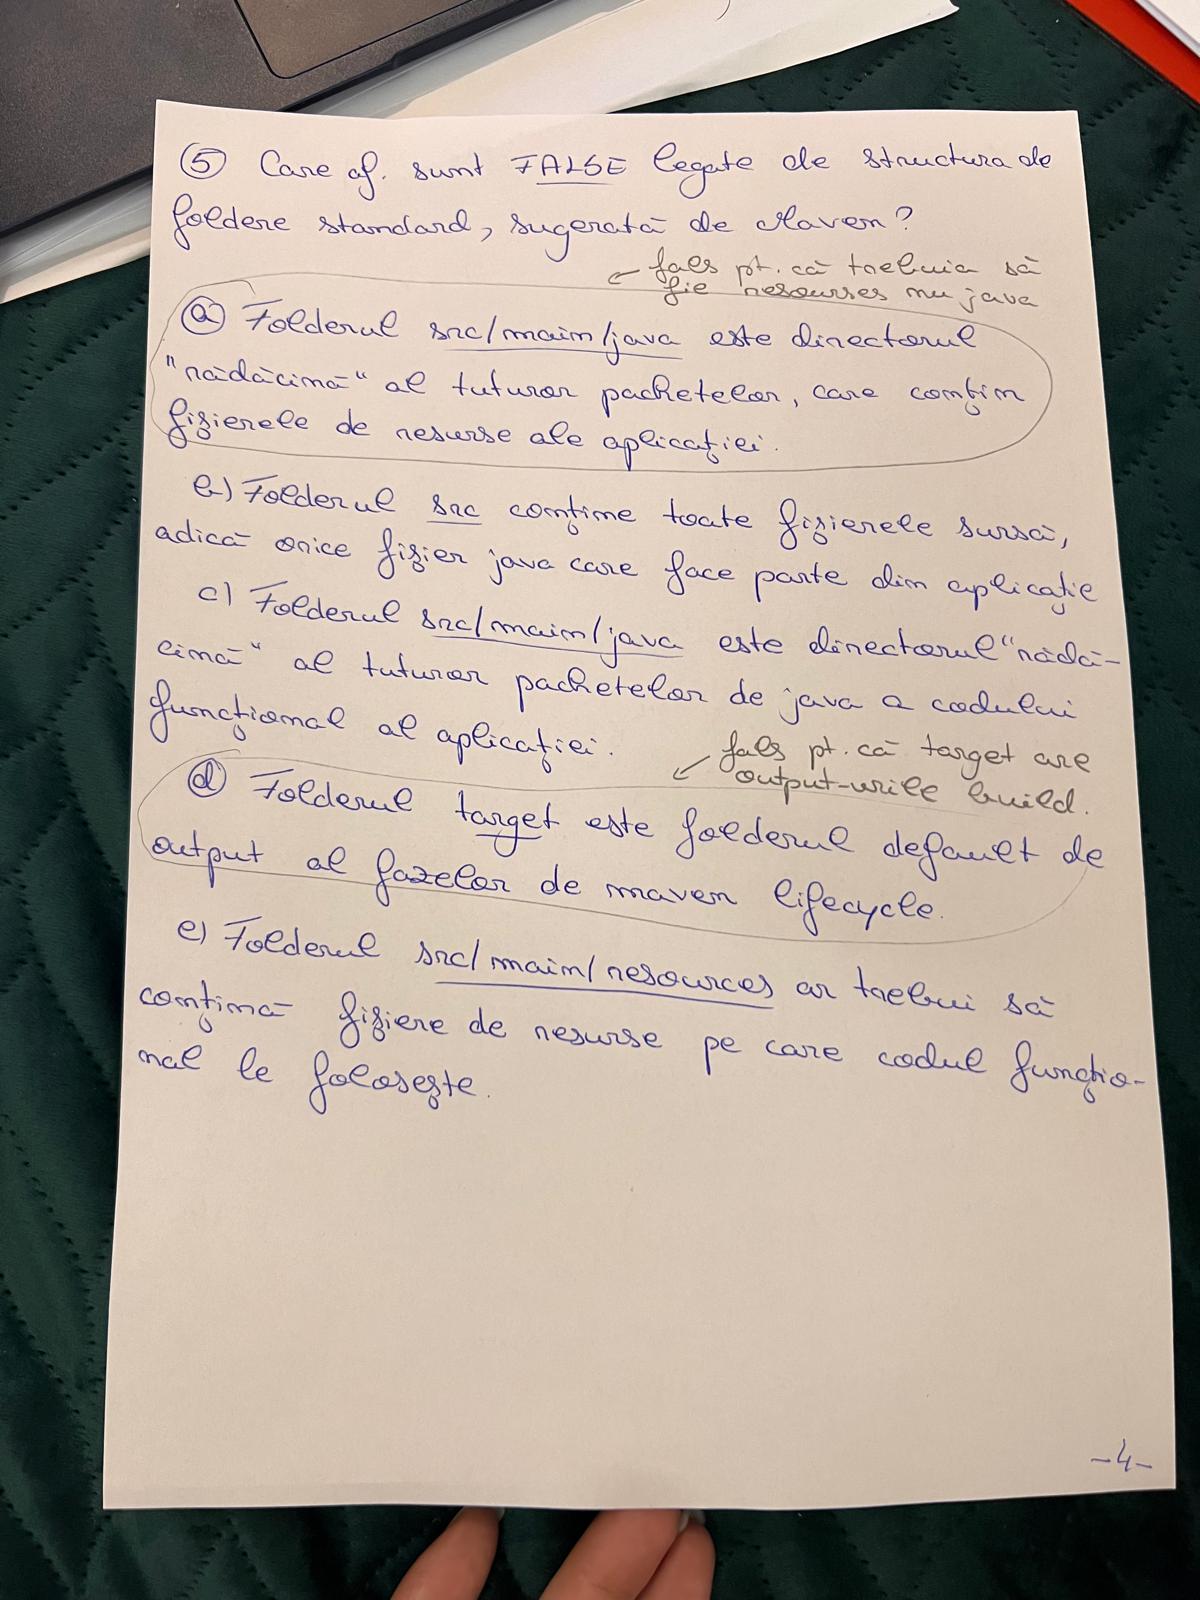 5 Care af. sunt FALSE legate de structura de
foldere standard, sugerată de Maven?
← fals pt. că trebuia să
fie resourses nu java
a) Folderul src/main/java este directorul
"rădăcină" al tuturor pachetelor, care conțin
fișierele de resurse ale aplicației.
b) Folderul src conține toate fișierele sursă,
adică orice fișier java care face parte din aplicație
c) Folderul src/main/java este directorul "rădă-
cină" al tuturor pachetelor de java a codului
funcțional al aplicației.
↙ fals pt. că target are
output-urile build.
d) Folderul target este folderul default de
output al fazelor de maven lifecycle.
e) Folderul src/main/resources ar trebui să
conțină fișiere de resurse pe care codul funcțio-
nal le folosește.
-4-